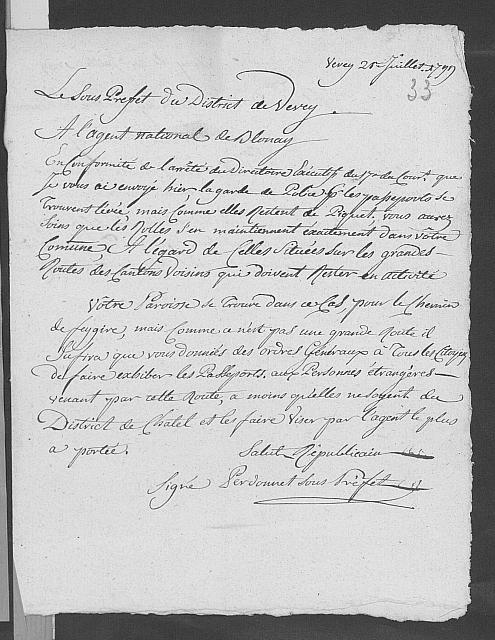 Vevey 21e Juillet 1799
33
Le Sous Prefet du District de Vevey
A l'agent national de Blonay
En Conformité de l'arrêté du Directoire Exécutif du 17e du Court. que
Je vous ai envoyé hier la garde de Police pr les passeports se
Trouvent levée, mais Comme elles Restent de Piquet, vous aurez
Soins que les Rolles S'en maintiennent exactement dans vôtre
Comune, A l'égard de Celles Situées sur les grandes
Routes des Cantons Voisins qui doivent Rester en activité
Vôtre Paroisse se Trouve dans ce Cas, pour le Chemin
de feygire, mais Comme ce n'est pas une grande Route il
Sufira que vous donniés des ordres Généraux à Tous les Citoyens
De faire exhiber les Passeports, aux Personnes étrangères
venant par cette Route, a moins qu'elles ne soyent du
District de Chatel et les faire Viser par l'agent le plus
a portée.
Salut Républicain
Signé Perdonnet Sous Préfet